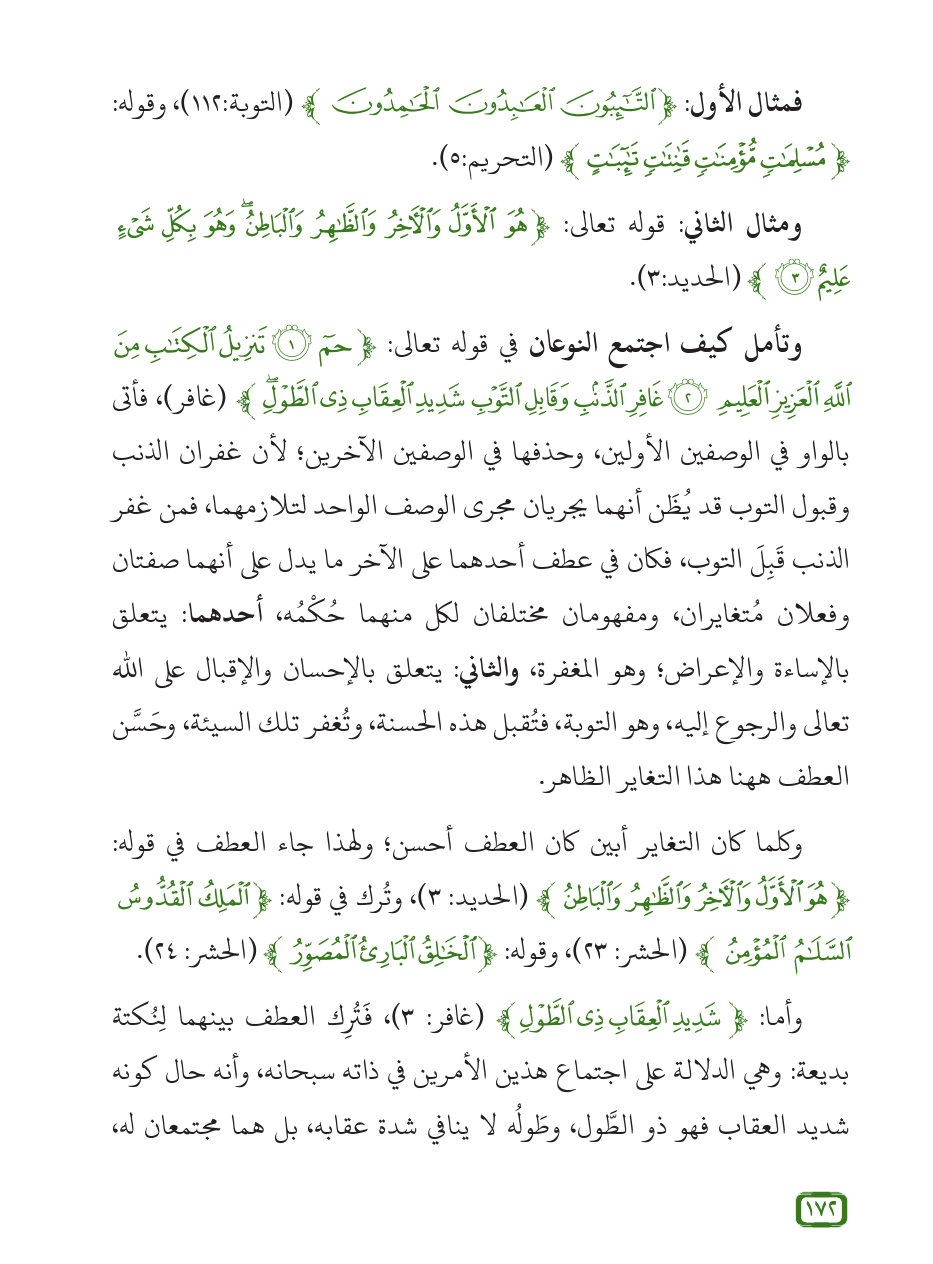 فمثال الأول: ﴿ٱلتَّٰٓئِبُونَ ٱلۡعَٰبِدُونَ ٱلۡحَٰمِدُونَ﴾ (التوبة:١١٢)، وقوله:
﴿مُسۡلِمَٰتٖ مُّؤۡمِنَٰتٖ قَٰنِتَٰتٖ تَٰٓئِبَٰتٍ﴾ (التحريم:٥).
ومثال الثاني: قوله تعالى: ﴿هُوَ ٱلۡأَوَّلُ وَٱلۡأٓخِرُ وَٱلظَّٰهِرُ وَٱلۡبَاطِنُۖ وَهُوَ بِكُلِّ شَيۡءٍ
عَلِيمٌ ٣﴾ (الحديد:٣).
وتأمل كيف اجتمع النوعان في قوله تعالى: ﴿حمٓ ١ تَنزِيلُ ٱلۡكِتَٰبِ مِنَ
ٱللَّهِ ٱلۡعَزِيزِ ٱلۡعَلِيمِ ٢ غَافِرِ ٱلذَّنۢبِ وَقَابِلِ ٱلتَّوۡبِ شَدِيدِ ٱلۡعِقَابِ ذِي ٱلطَّوۡلِۖ﴾ (غافر)، فأتى
بالواو في الوصفين الأولين، وحذفها في الوصفين الآخرين؛ لأن غفران الذنب
وقبول التوب قد يُظَن أنهما يجريان مجرى الوصف الواحد لتلازمهما، فمن غفر
الذنب قَبِلَ التوب، فكان في عطف أحدهما على الآخر ما يدل على أنهما صفتان
وفعلان مُتغايران، ومفهومان مختلفان لكل منهما حُكْمُه، أحدهما: يتعلق
بالإساءة والإعراض؛ وهو المغفرة، والثاني: يتعلق بالإحسان والإقبال على الله
تعالى والرجوع إليه، وهو التوبة، فتُقبل هذه الحسنة، وتُغفر تلك السيئة، وحَسَّن
العطف ههنا هذا التغاير الظاهر.
وكلما كان التغاير أبين كان العطف أحسن؛ ولهذا جاء العطف في قوله:
﴿هُوَ ٱلۡأَوَّلُ وَٱلۡأٓخِرُ وَٱلظَّٰهِرُ وَٱلۡبَاطِنُ﴾ (الحديد: ٣)، وتُرك في قوله: ﴿ٱلۡمَلِكُ ٱلۡقُدُّوسُ
ٱلسَّلَٰمُ ٱلۡمُؤۡمِنُ﴾ (الحشر: ٢٣)، وقوله: ﴿ٱلۡخَٰلِقُ ٱلۡبَارِئُ ٱلۡمُصَوِّرُ﴾ (الحشر: ٢٤).
وأما: ﴿شَدِيدِ ٱلۡعِقَابِ ذِي ٱلطَّوۡلِ﴾ (غافر: ٣)، فَتُرِك العطف بينهما لِنُكتة
بديعة: وهي الدلالة على اجتماع هذين الأمرين في ذاته سبحانه، وأنه حال كونه
شديد العقاب فهو ذو الطَّول، وطَولُه لا ينافي شدة عقابه، بل هما مجتمعان له،
١٧٢